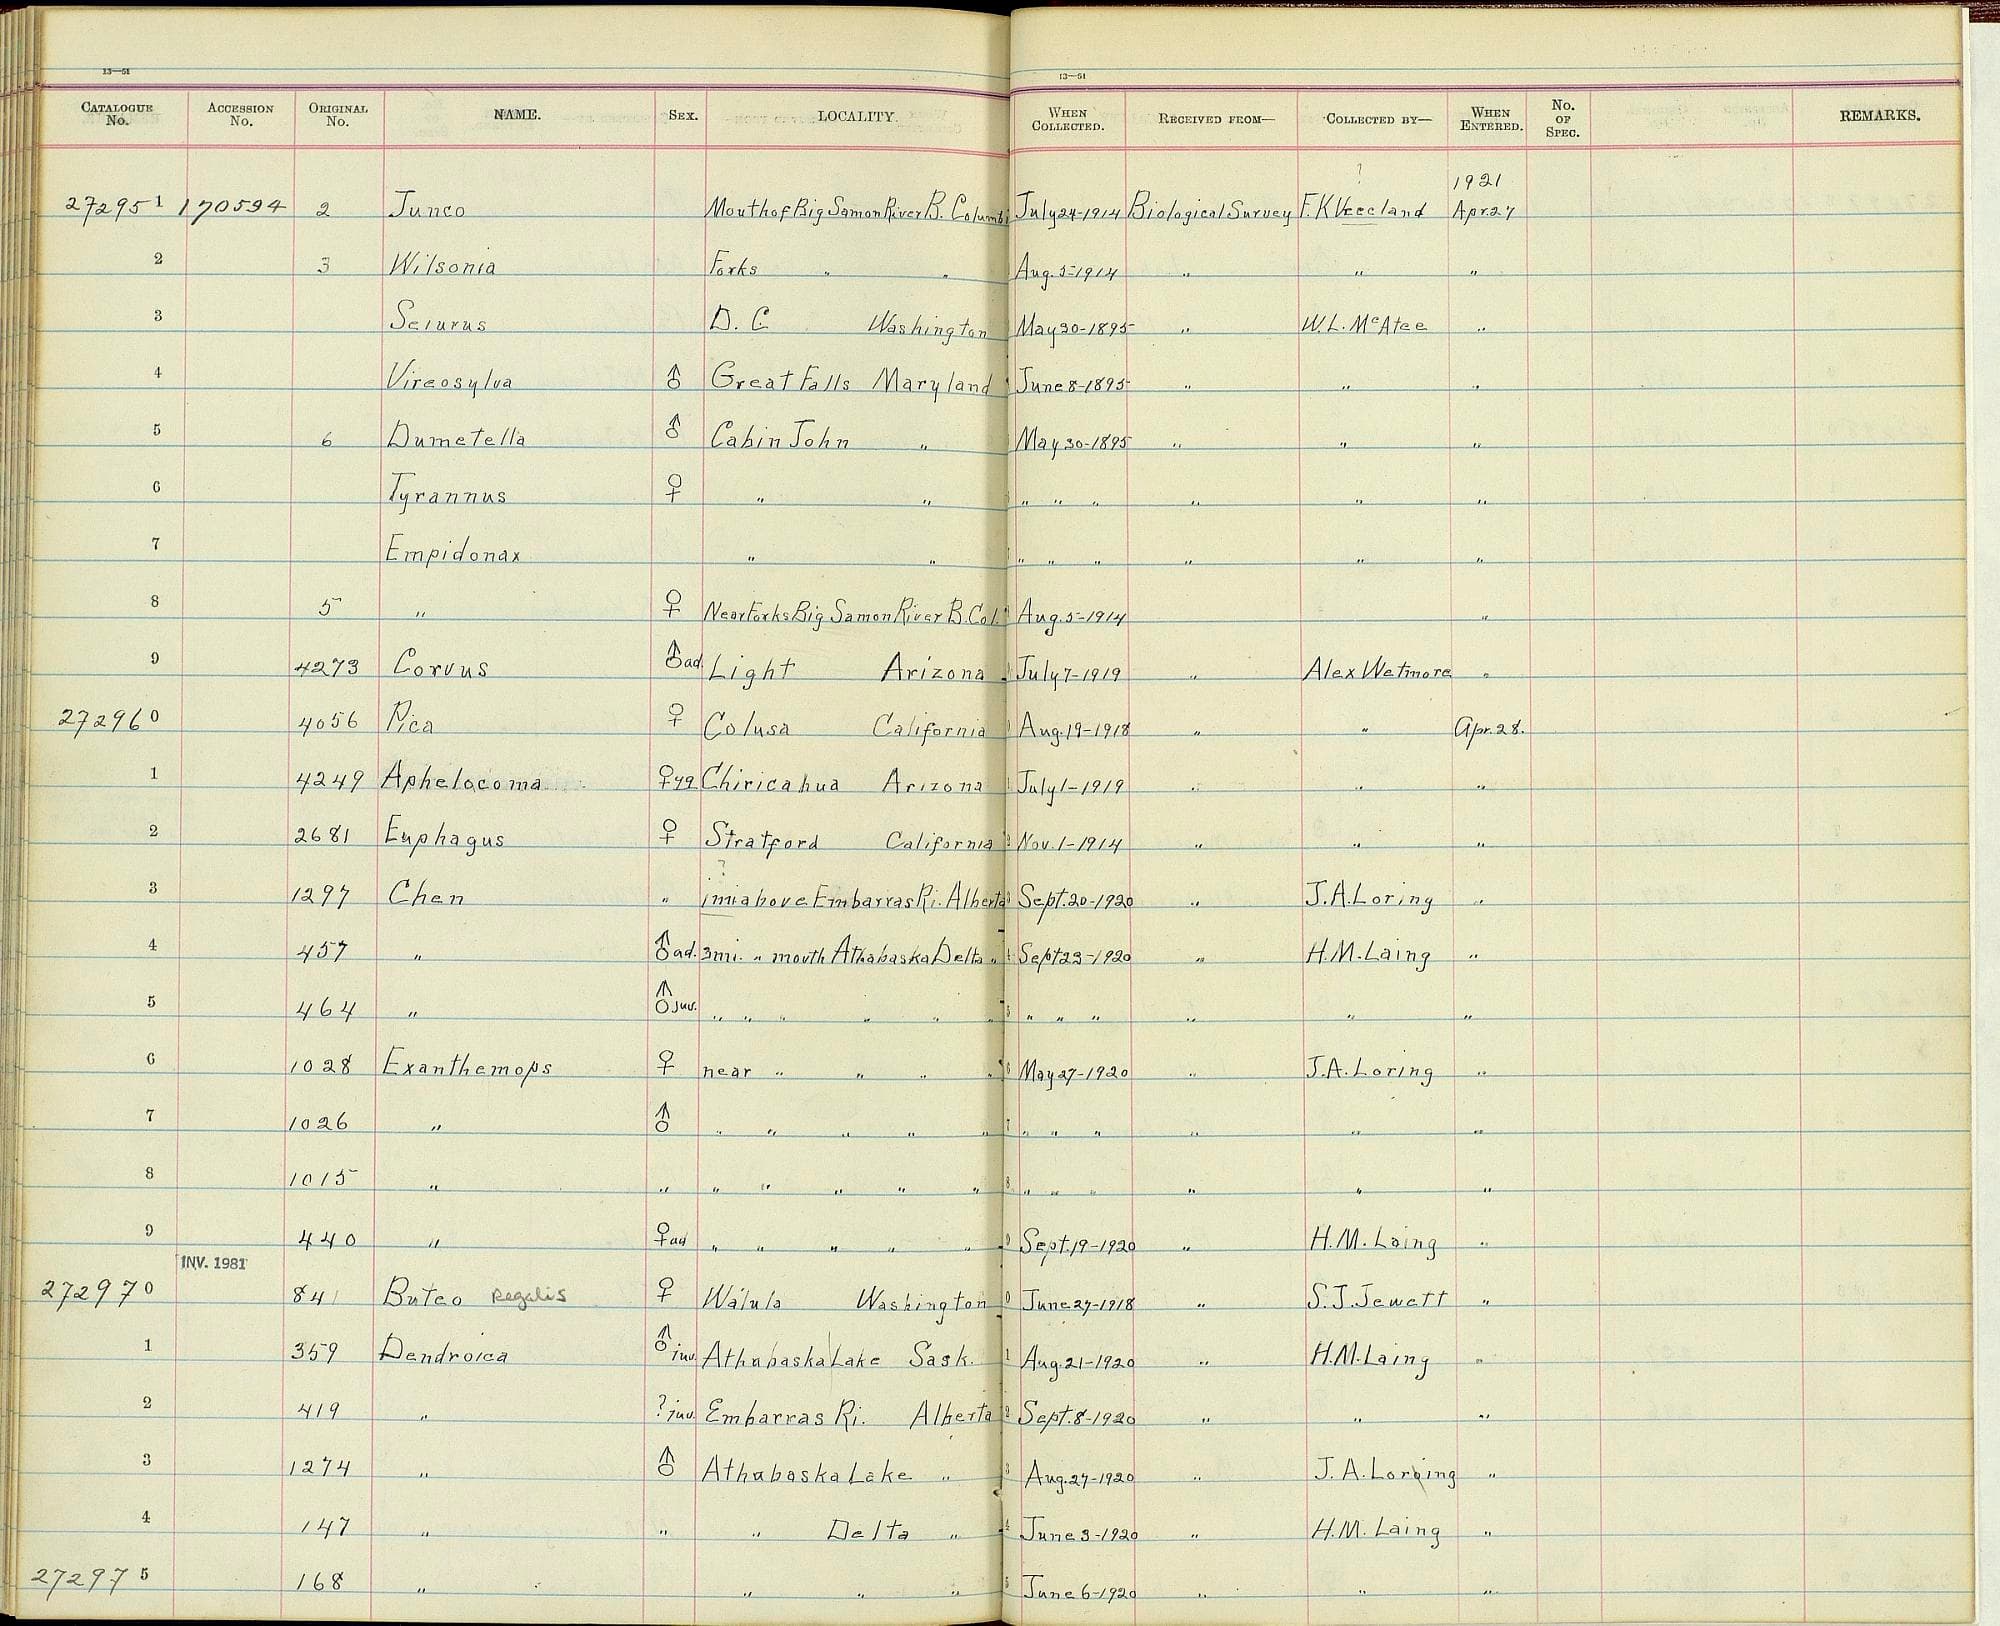 13—51 13—51
CATALOGUE No. ACCESSION No. ORIGINAL No. NAME. SEX. LOCALITY. WHEN COLLECTED. RECEIVED FROM— COLLECTED BY— WHEN ENTERED. No. OF SPEC. REMARKS.
? 1921
272951 170594 2 Junco Mouth of Big Samon River B. Columbi July 24-1914 Biological Survey F. K Vreeland Apr. 27
2 3 Wilsonia Forks " " Aug. 5-1914 " " "
3 Seiurus D. C Washington May 30-1895 " W. L. McAtee "
4 Vireosylva ♂ Great Falls Maryland June 8-1895 " " "
5 6 Dumetella ♂ Cabin John " May 30-1895 " " "
6 Tyrannus ♀ " " " " " " " "
7 Empidonax " " " " " " " "
8 5 " ♀ Near Forks Big Samon River B. Col. Aug. 5-1914 "
9 4273 Corvus ♂ad. Light Arizona July 7-1919 " Alex Wetmore "
272960 4056 Pica ♀ Colusa California Aug. 19-1918 " " Apr. 28.
1 4249 Aphelocoma ♀yg Chiricahua Arizona July 1-1919 " " "
2 2681 Euphagus ♀ Stratford California Nov. 1-1914 " " "
?
3 1297 Chen " 1mi above Embarras Ri. Alberta Sept. 20-1920 " J. A. Loring "
4 457 " ♂ad. 3mi. " mouth Athabaska Delta " Sept 23-1920 " H. M. Laing "
5 464 " ♂juv. " " " " " " " " " " " "
6 1028 Exanthemops ♀ near " " " " May 27-1920 " J. A. Loring "
7 1026 " ♂ " " " " " " " " " " "
8 1015 " " " " " " " " " " " " "
9 440 " ♀ad " " " " " Sept. 19-1920 " H. M. Laing "
INV. 1981
272970 841 Buteo regalis ♀ Walula Washington June 27-1918 " S. J. Jewett "
1 359 Dendroica ♂ juv. Athabaska Lake Sask. Aug. 21-1920 " H. M. Laing "
2 419 " ? juv. Embarras Ri. Alberta Sept. 8-1920 " " "
3 1274 " ♂ Athabaska Lake " Aug. 27-1920 " J. A. Loring "
4 147 " " " Delta " June 3-1920 " H. M. Laing "
272975 168 " " " " June 6-1920 " " "